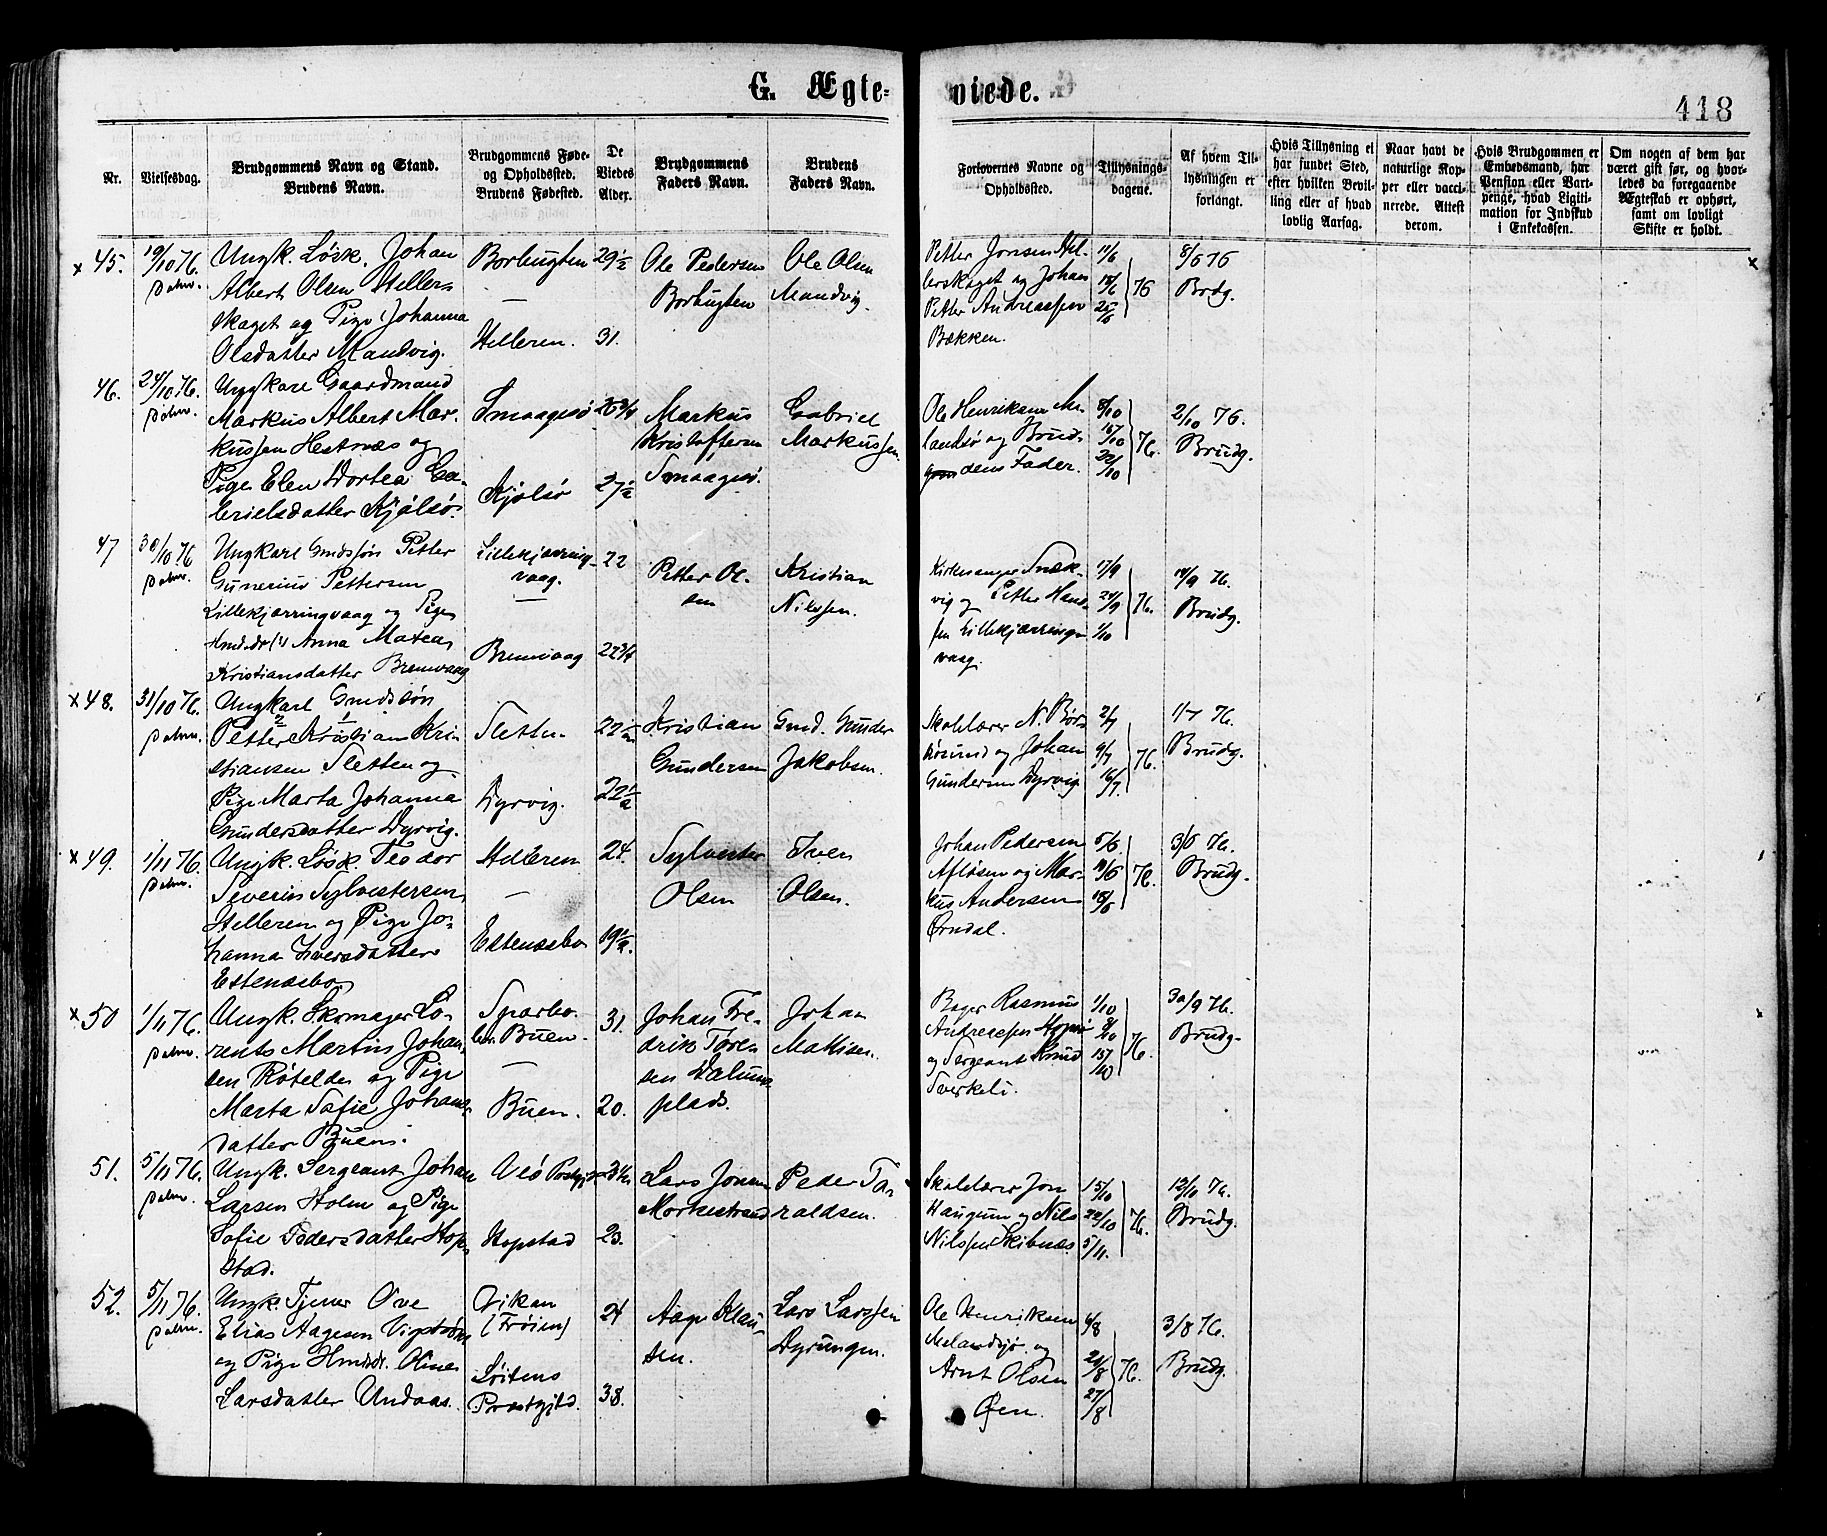 G. Ægteviede.
418
Nr.
Vielsesdag.
Brudgommens Navn og Stand.
Brudens Navn.
Brudgommens Føde-
og Opholdssted.
Brudens Fødested.
De
Viedes
Alder.
Brudgommens
Faders Navn.
Brudens
Faders Navn.
Forlovernes Navne og
Opholdssted.
Tillysnings-
dagene.
Af hvem Til-
lysningen er
forlangt.
Hvis Tillysning ei
har fundet Sted,
efter hvilken Bevil-
ling eller af hvad
lovlig Aarsag.
Naar havt de
naturlige Kop-
per eller vacci-
nerede. Attest
derom.
Hvis Brudgommen er
Embedsmand, har
Pension eller Vart-
penge, hvad Ligiti-
mation for Indskud
i Enkekassen.
Om nogen af dem har
været gift før, og hvor-
ledes da foregaaende
Ægteskab er ophørt,
samt om lovligt
Skifte er holdt.
x 45. 19/10 76.
Ungk. Løsk. Johan
Albert Olsen Heller-
skaget og Pige Johanna
Olsdatter Mandvig.
Borhugten
—
Helleren.
29½
31.
Ole Pedersen
Borhugten
Ole Olsen
Mandvig.
Petter Jonsen Hel-
lerskaget og Johan
Petter Andreassen
Bækken.
11/6
18/6
25/6
76
8/6 76
Brdg.
x
46. 24/10 76.
Ungkarl Gaardmand
Markus Albert Mar-
kussen Hestnæs og
Pige Elen Dortea Ga-
brielsdatter Kjølsø.
Smaagesø
Kjølsø
26¾
27½
Markus
Kristoffersen
Smaagesø.
Gabriel
Markussen.
Ole Henriksen Me-
landsø og Brud-
dens Fader.
8/10
15/10
22/10
76.
2/10 76.
Brudg.
47 30/10 76
Ungkarl Gmdssøn Petter
Gunerius Pettersen
Lillekjærringvaag og Pige
Hmdsdr (?) Anna Matea
Kristiansdatter Bremvaag
Lillekjærring-
vaag.
—
Bremvaag
22
22¾
Petter Ol-
sen
Kristian
Nilssen.
Kirkesanger Snæk-
vig og Petter Han-
sen Lillekjærring-
vaag.
17/9
24/9
1/10
76.
14/9 76.
Brudg.
x 48. 31/10 76.
Ungkarl Gmdssøn
Petter Kristian Kri-
stiansen Sletten og
Pige Marta Johanna
Gundersdatter Dyrvig.
Sletten
Dyrvig.
22½
22½
Kristian
Gundersen
Gmd. Gunder
Jakobsen.
Skolelærer N. Børø-
søsund og Johan
Gundersen Dyrvig
2/7
9/7
16/7.
76.
1/7 76.
Brudg.
x 49. 1/11 76.
Ungk. Løsk. Teodor
Severin Sylvestersen
Helleren og Pige Jo-
hanna Iversdatter
Estensebo
Helleren
—
Estensebo
24.
19½.
Sylvester
Olsen
Iver
Olsen.
Johan Pedersen
Afløsen og Mar-
kus Andersen
Ørndal.
5/6.
11/6
18/6
76.
3/6 76.
Brudg.
x 50 1/11 76.
Ungk. Skomager Lo-
rents Martin Johan-
sen Røtelde og Pige
Marta Sofie Johans-
datter Buen.
Sparbo-
Buen.
—
Buen.
31.
20.
Johan Fre-
drik Tore-
sen Dalums-
plads.
Johan
Matisen.
Bager Rasmus
Andreassen Hopsø
og Sergeant Knud
Sverkeli.
1/10
8/10
15/10
76.
30/9 76.
Brudg.
51. 5/11 76.
Ungk. Sergeant Johan
Larsen Holm og Pige
Sofie Pedersdatter Hop-
stad.
Veø Præstgj.
Hopstad
23.
Lars Jonsen
Morkestrand
Peder Ta-
raldsen.
Skolelærer Jon
Haugum og Nils
Nilssen Skibnæs
15/10
22/10
5/11.
76.
12/10 76.
Brudg.
52. 5/11 76.
Ungk. Tjener Ove
Elias Aagesen Vigstrøm
og Pige Hmdsdr. Oline
Larsdatter Undaas.
Vikan
(Frøien)
Løitens
Præstgjld.
24
38.
Aage Klau-
sen.
Lars Larssen
Dyrungen.
Ole Henriksen
Melandsjø og
Arnt Olsen
Øien.
6/8
20/8
27/8
76.
3/8 76.
Brudg.